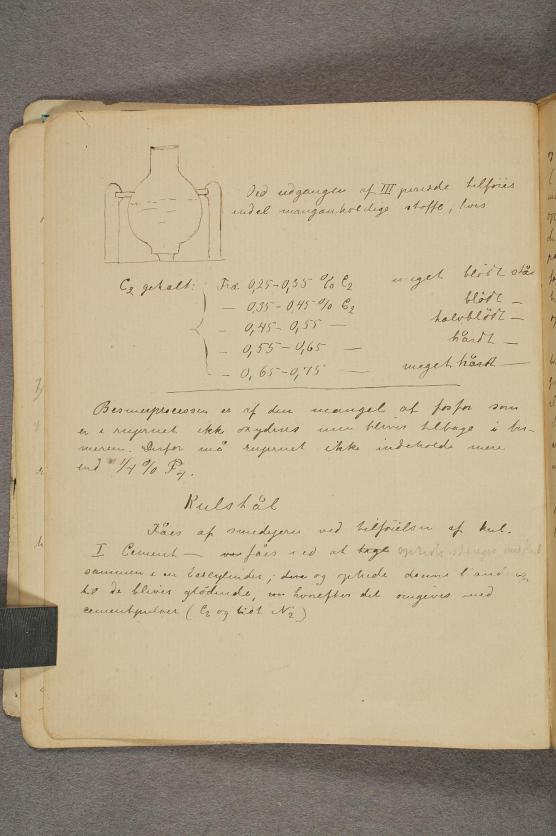 Ved udgangen af III periode tilføies
endel manganholdige stoffe, hvis
C2 gehalt: Fra 0,25-0,35 % C2 meget blödt stål
— 0,35-0,45 % C2 blödt —
— 0,45-0,55 — halvblödt —
— 0,55-0,65 — hårdt —
— 0,65-0,75 — meget hårdt —
Besmerprocessen er af den mangel at fosfor som
er i rujernet ikke oxyderes men blives tilbage i bes-
meren. Derfor må rujernet ikke indeholde mere
end 1/4 % P4.
Kulstål
Fåes af smedejern ved tilföielse af kul.
I Cement — fåes ved at ophede stænger med kul
sammen i en cylinder, og ophede denne
til de bliver glödende, hvorefter det omgives med
cementpulver (C2 og lidt N2)